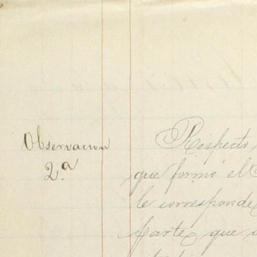 Observacion
2.a
Respecto
que formó el
le corresponde
parte, que